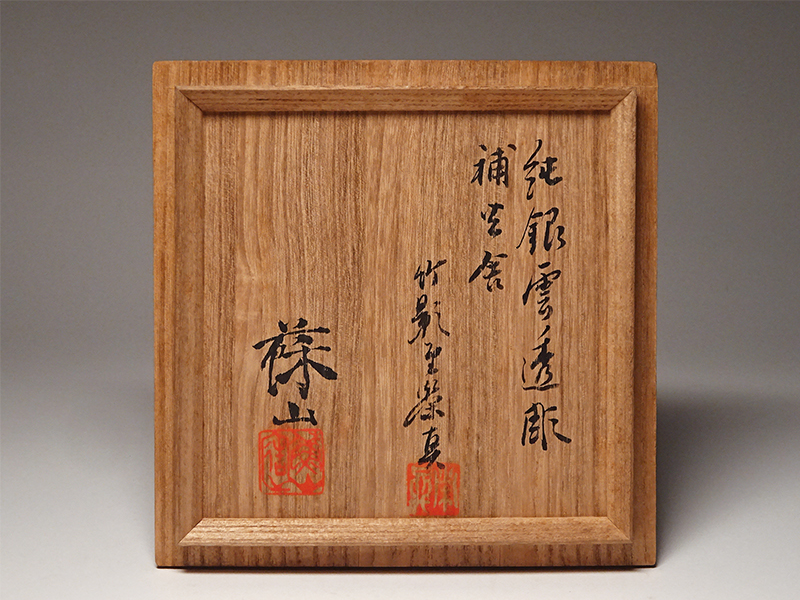 純銀雲透彫
補炭舎
竹影堂榮真
篠山